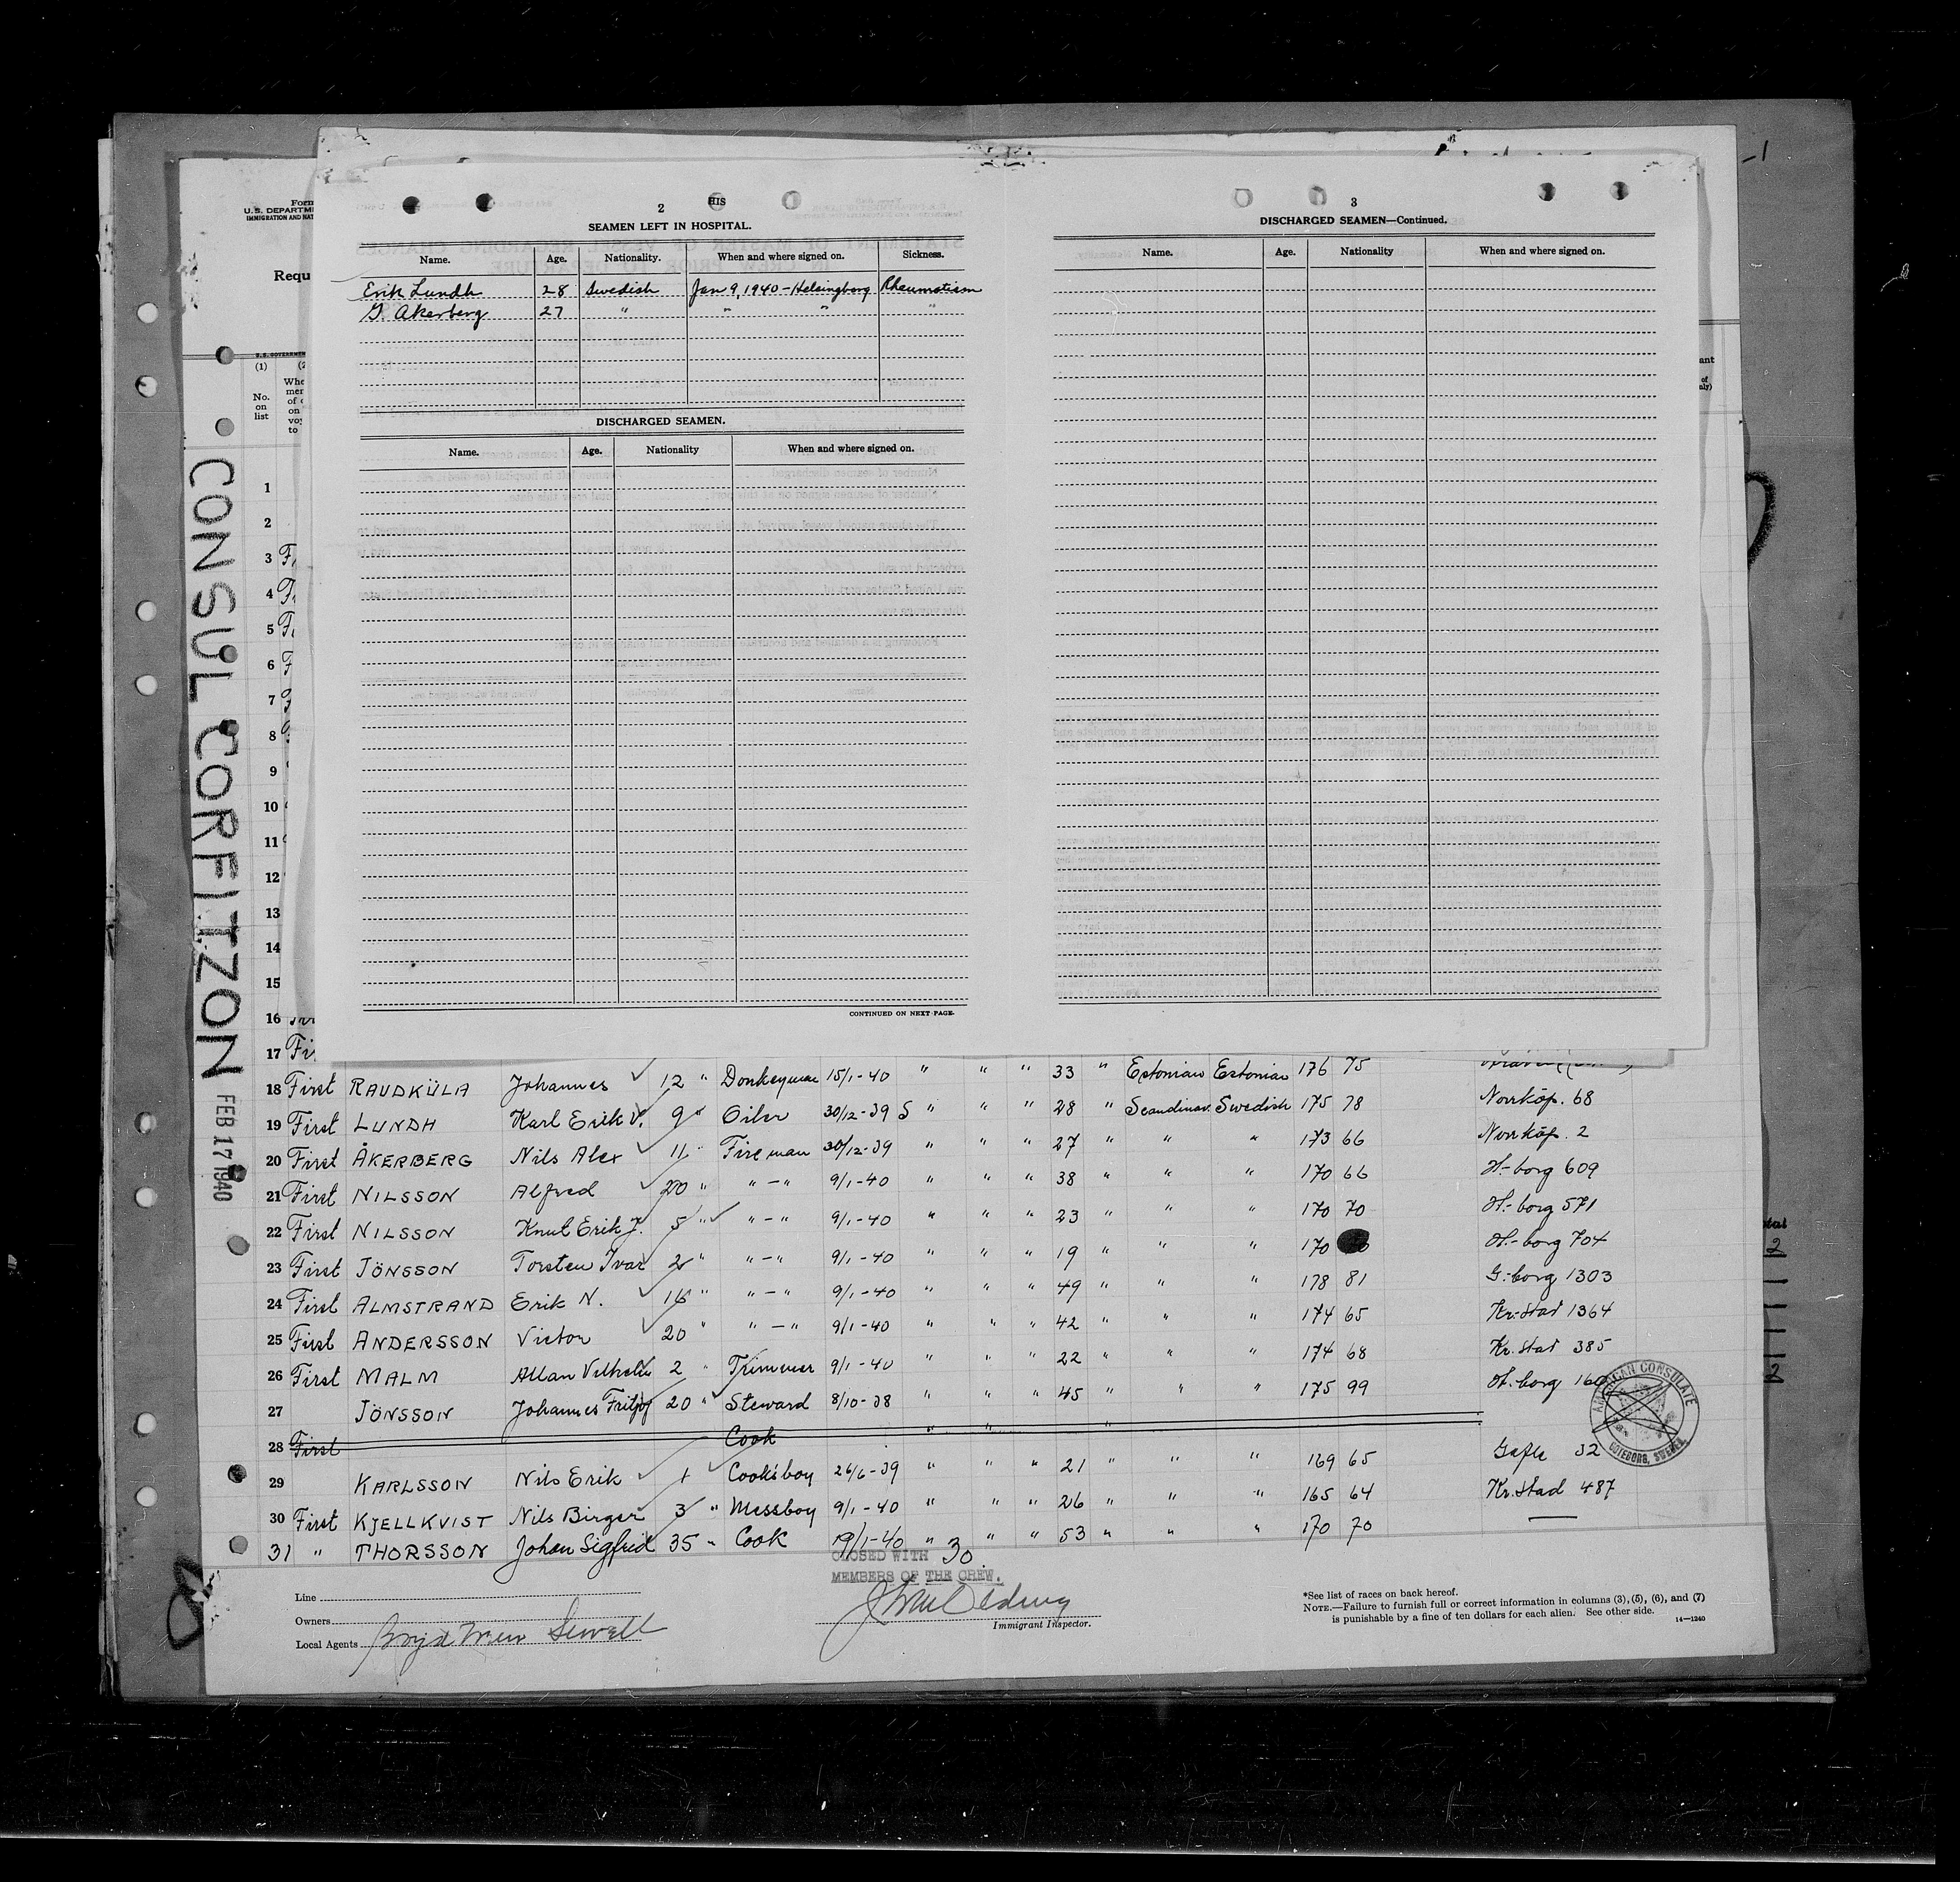 2
HIS
SEAMEN LEFT IN HOSPITAL.
Name. Age. Nationality. When and where signed on. Sickness.
Erik Lundh 28 Swedish Jan 9, 1940 - Helsingborg Rheumatism
G. Akerberg 27 " " " "
DISCHARGED SEAMEN.
Name. Age. Nationality When and where signed on.
CONTINUED ON NEXT PAGE.
3
DISCHARGED SEAMEN—Continued.
Name. Age. Nationality When and where signed on.
Form
U.S. DEPARTM
IMMIGRATION AND NAT
Requ
U.S. GOVERNMEN
(1)
No.
on
list
CONSUL CORFITZON
FEB 17 1940
1
2
3
4
5
6
7
8
9
10
11
12
13
14
15
16
17
18 First RAUDKÜLA Johannes 12 " Donkeyman 15/1-40 " " " 33 " Estonian Estonian 176 75
19 First LUNDH Karl Erik V. 9 " Oiler 30/12-39 S " " " 28 " Scandinav. Swedish 175 78 Norrköp. 68
20 First ÅKERBERG Nils Alex 11 " Fireman 30/12-39 " " " 27 " " " 173 66 Norrköp. 2
21 First NILSSON Alfred 20 " " - " 9/1-40 " " " 38 " " " 170 66 H.-borg 609
22 First NILSSON Knut Erik J. 5 " " - " 9/1-40 " " " 23 " " " 170 70 H.-borg 571
23 First JÖNSSON Torsten Ivar 2 " " - " 9/1-40 " " " 19 " " " 170 H.-borg 704
24 First ALMSTRAND Erik N. 16 " " - " 9/1-40 " " " 49 " " " 178 81 G:-borg 1303
25 First ANDERSSON Victor 20 " " - " 9/1-40 " " " 42 " " " 174 65 Kr.-Stad 1364
26 First MALM Allan Vilhelm 2 " Trimmer 9/1-40 " " " 22 " " " 174 68 Kr. stad 385
27 JÖNSSON Johannes Fritjof 20 " Steward 8/10-38 " " " 45 " " " 175 99 H.-borg
28 First Cook " " "
29 KARLSSON Nils Erik 1 Cooksboy 26/6-39 " " " 21 " " " 169 65 Gefle 32
30 First KJELLKVIST Nils Birger 3 " Messboy 9/1-40 " " " 26 " " " 165 64 Kr.Stad 487
31 " THORSSON Johan Sigfrid 35 " Cook 19/1-40 " " " 53 " " " 170 70 —
AMERICAN CONSULATE
GOTEBORG, SWEDEN
CLOSED WITH 30
MEMBERS OF THE CREW.
Line
Owners
Local Agents
Immigrant Inspector.
*See list of races on back hereof.
NOTE.—Failure to furnish full or correct information in columns (3), (5), (6), and (7)
is punishable by a fine of ten dollars for each alien. See other side.
14—1240